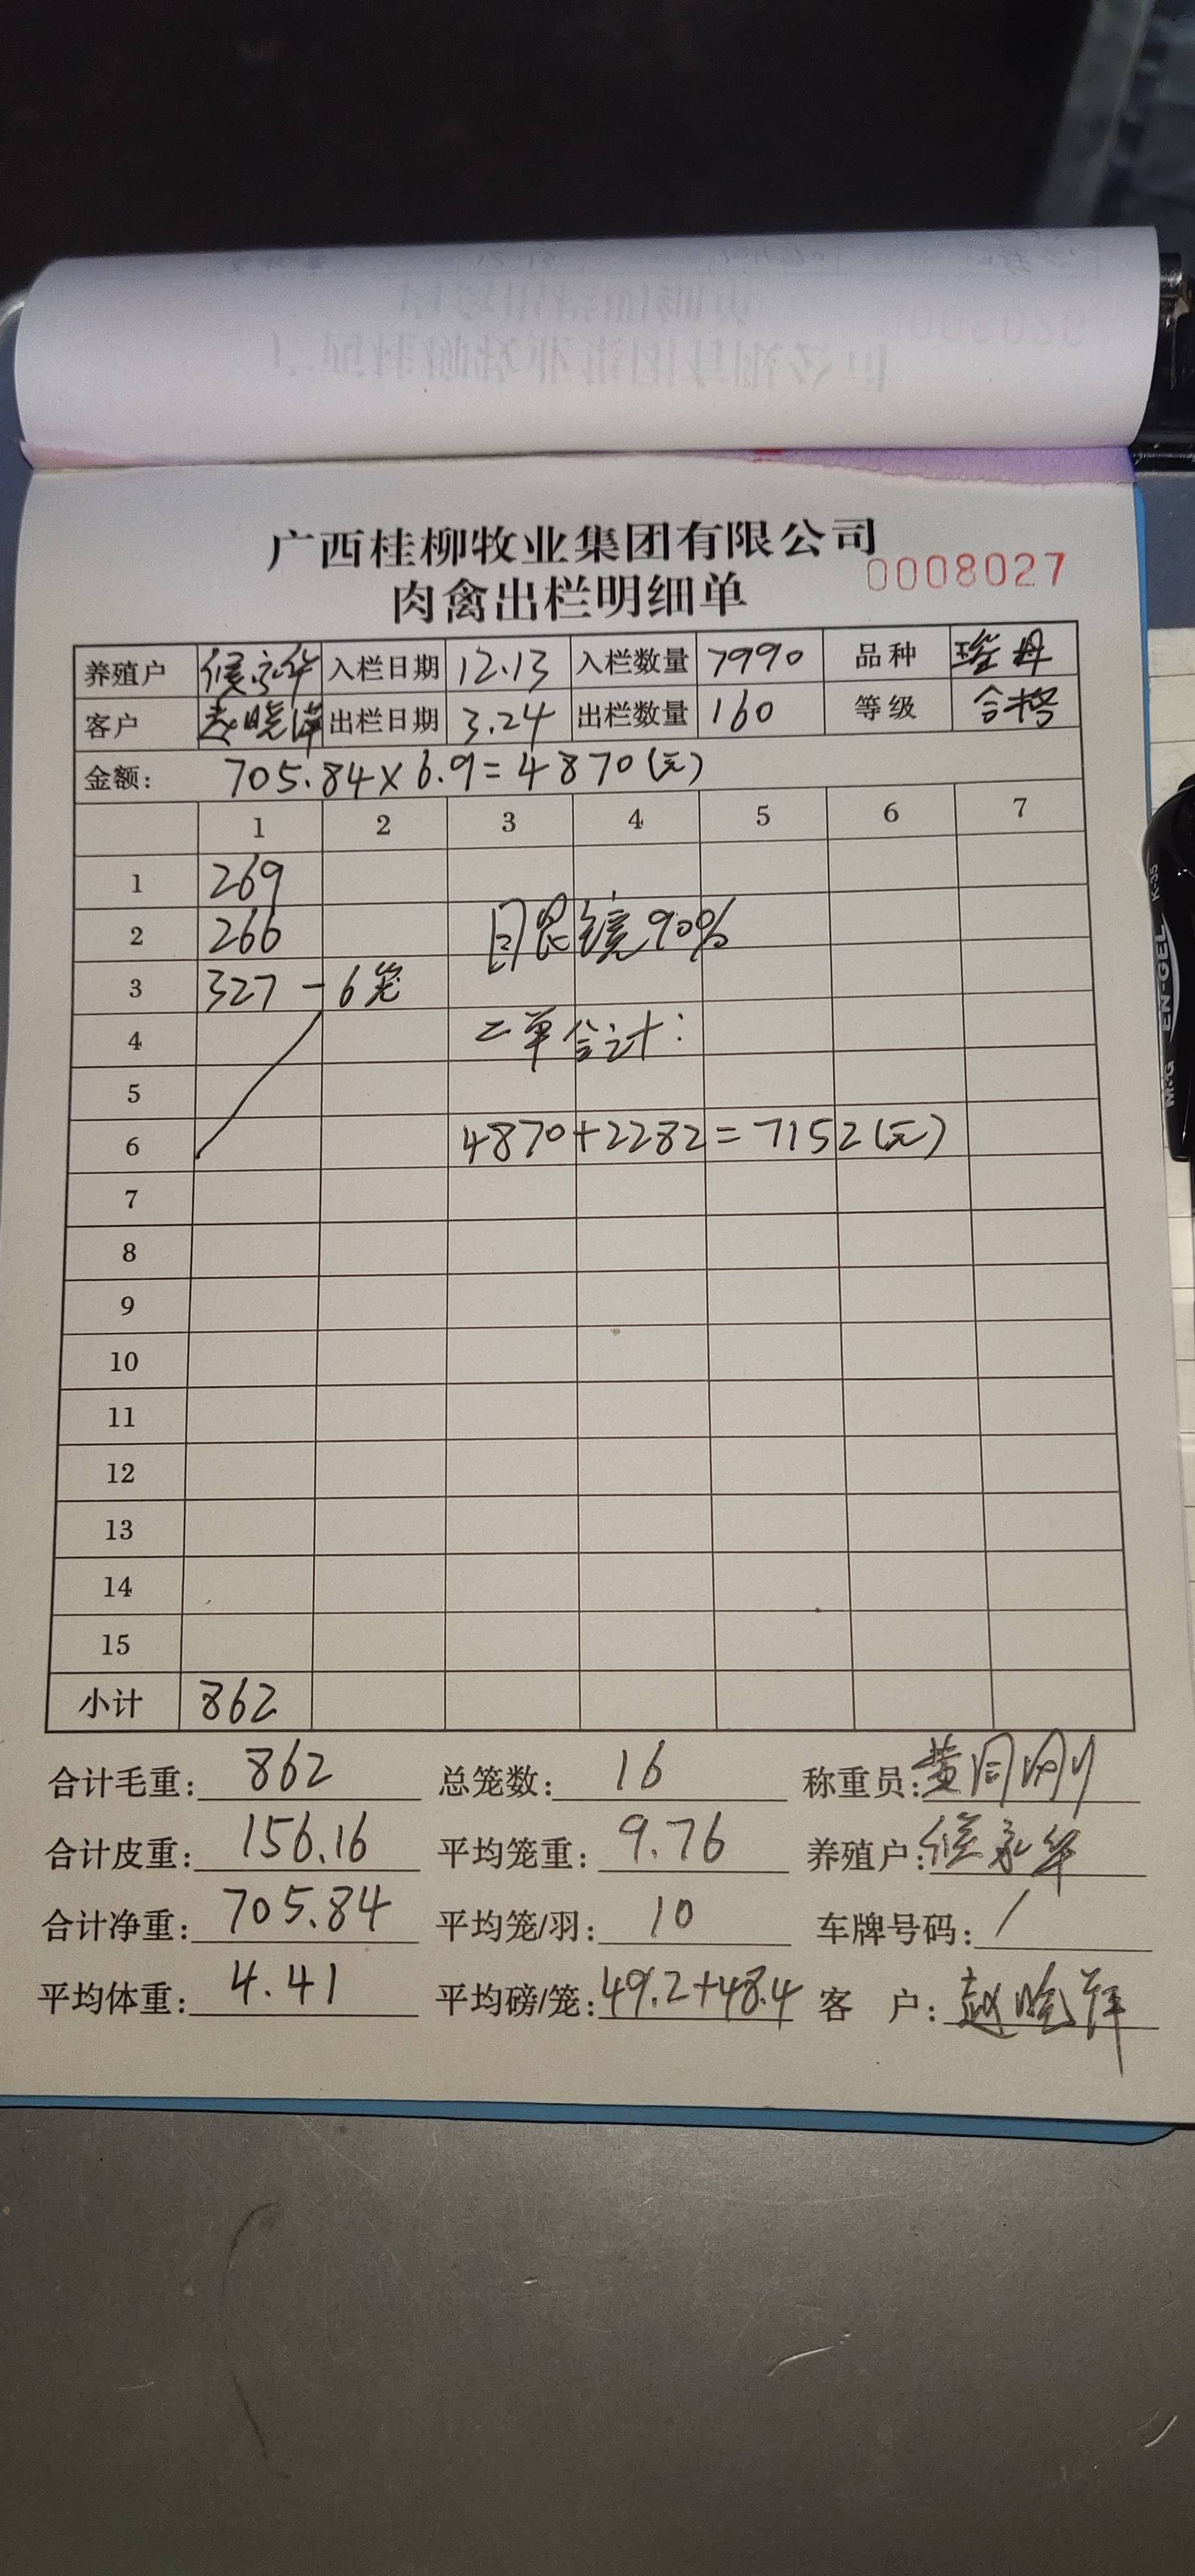 广西桂柳牧业集团有限公司
肉禽出栏明细单 0008027
养殖户 候永华 入栏日期 12.13 入栏数量 7990 品种 瑶母
客户 赵晓萍 出栏日期 3.24 出栏数量 160 等级 合格
金额: 705.84×6.9=4870(元)
1 2 3 4 5 6 7
1 269
2 266 目艮镜90%
3 327 - 6笼
4 二单合计:
5
6 4870+2282=7152(元)
7
8
9
10
11
12
13
14
15
小计 862
合计毛重: 862 总笼数: 16 称重员: 黄同刚
合计皮重: 156.16 平均笼重: 9.76 养殖户: 候永华
合计净重: 705.84 平均笼/羽: 10 车牌号码: /
平均体重: 4.41 平均磅/笼: 49.2+48.4 客 户: 赵晓萍
M&G EN-GEL K-35